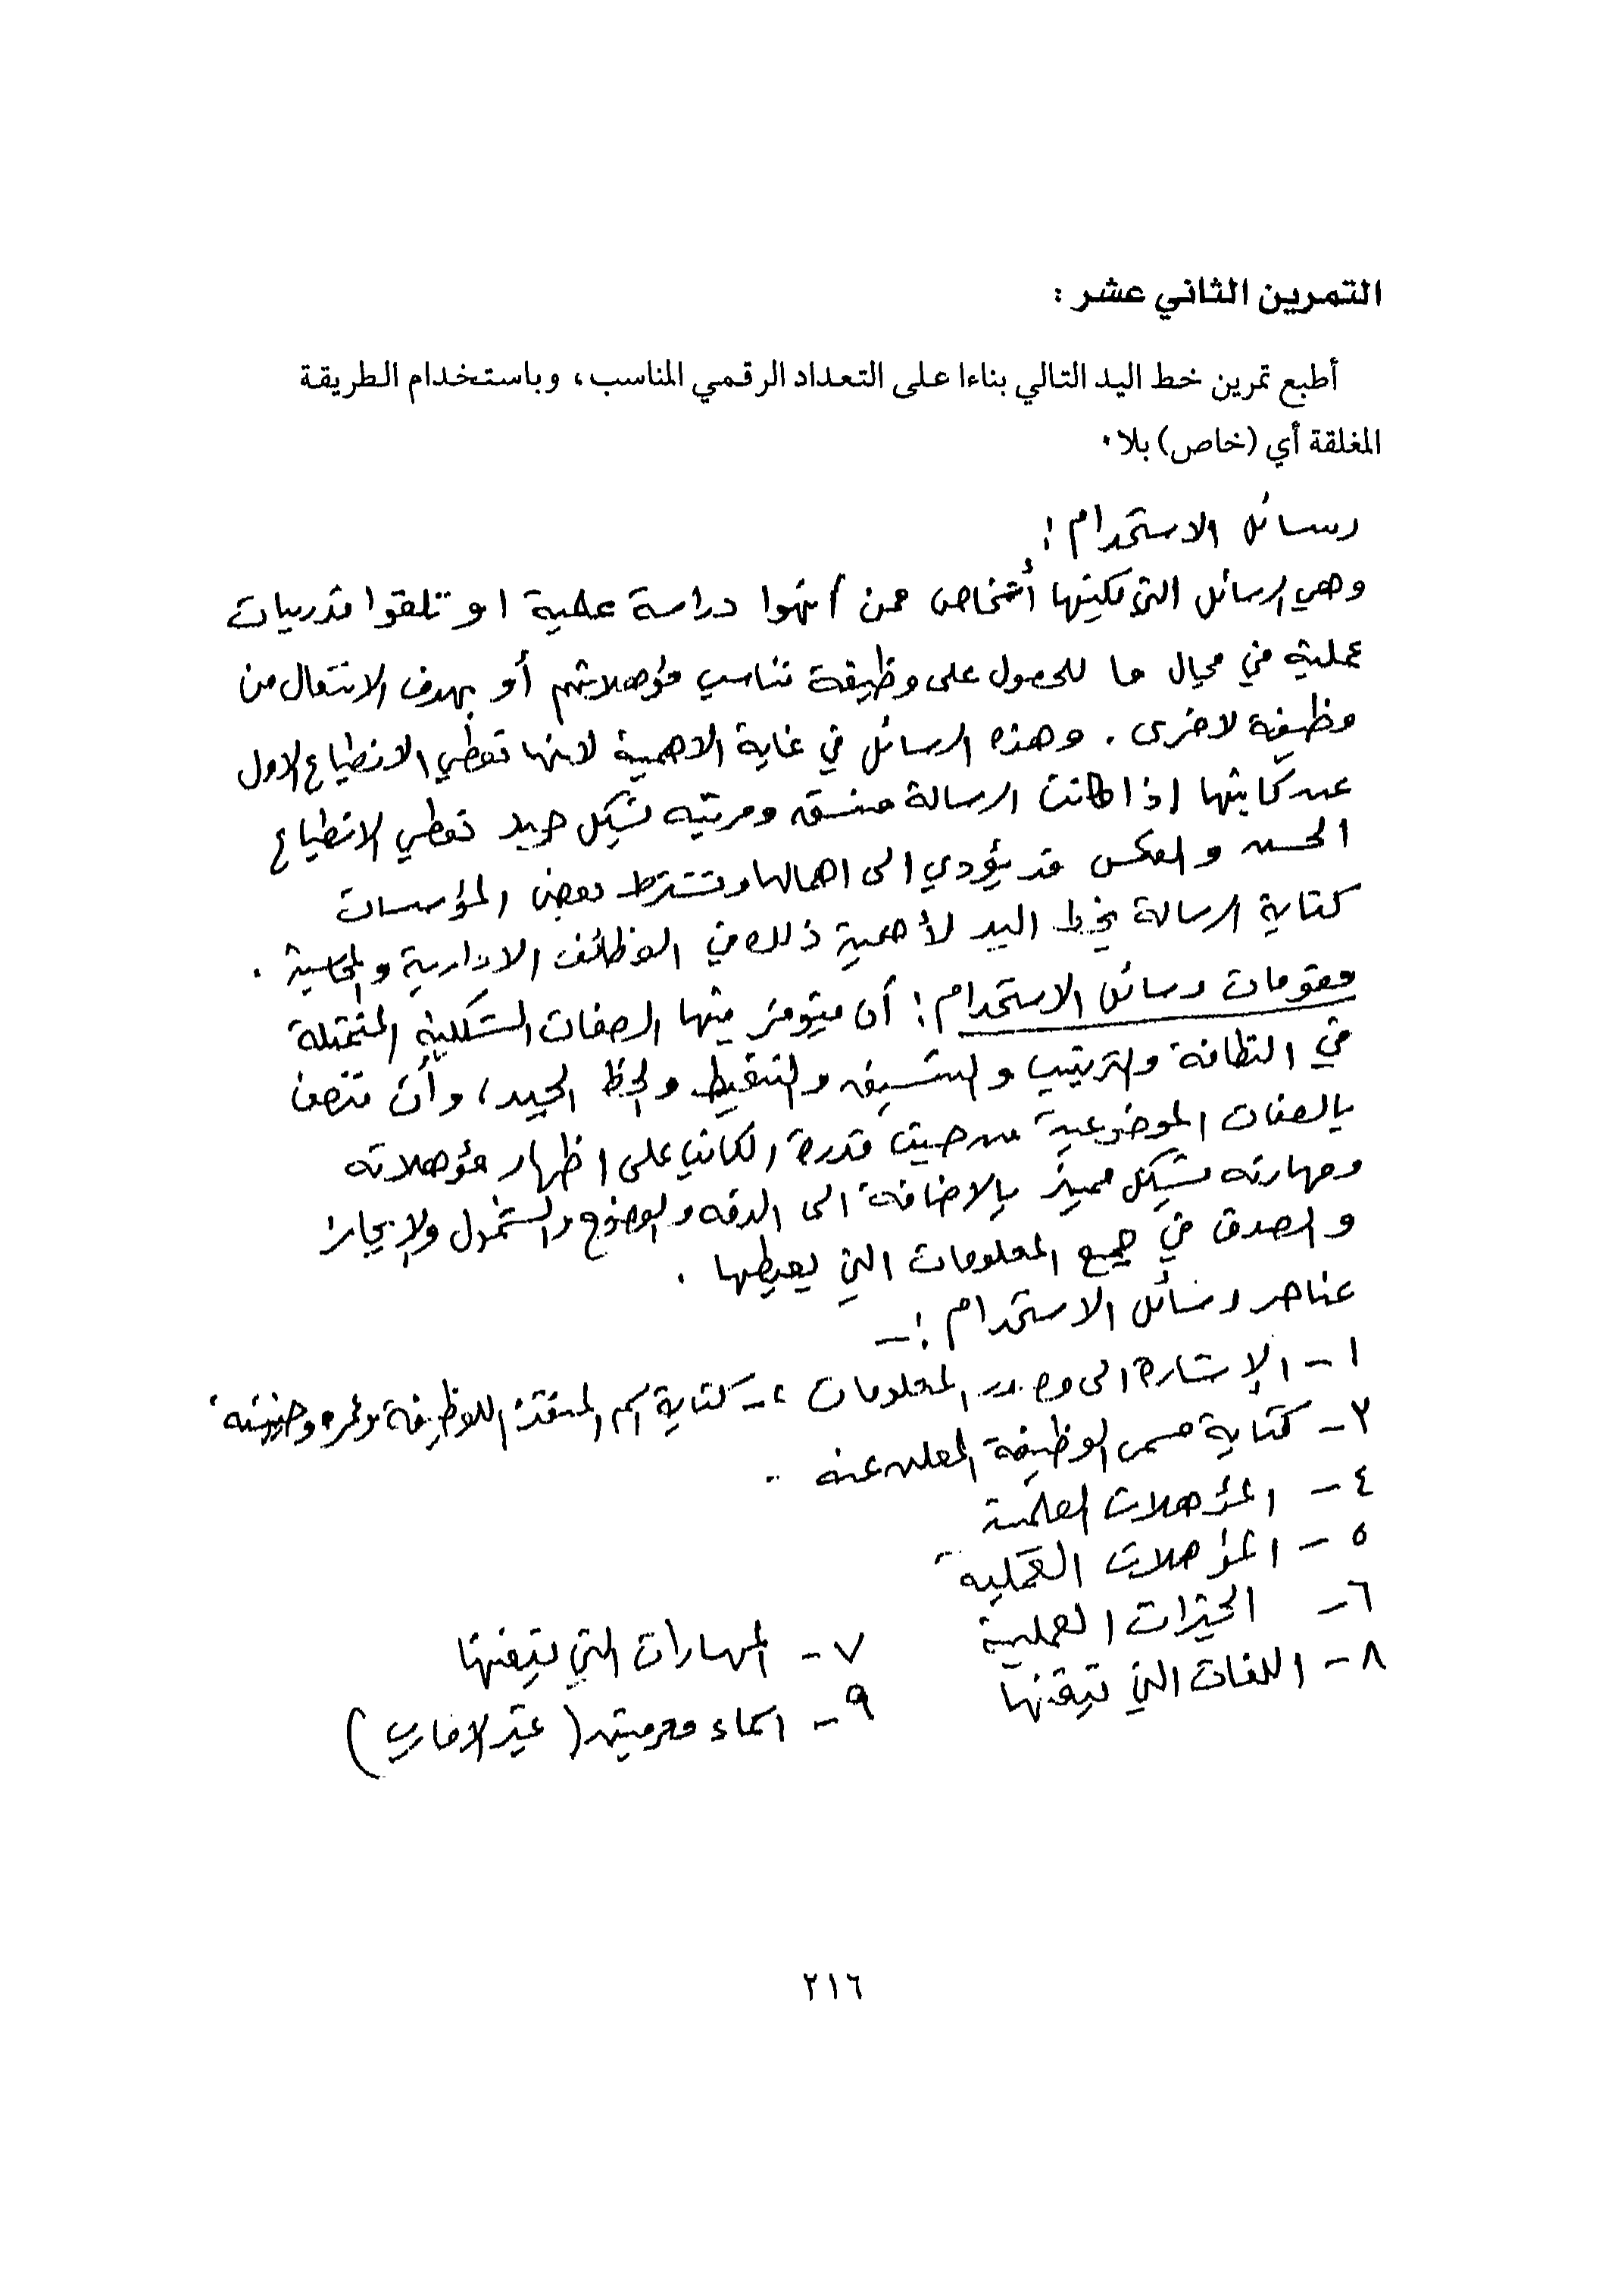 التمرين الثاني عشر :
أطبع تمرين خط اليد التالي بناءا على التعداد الرقمي المناسب، وباستخدام الطريقة
المغلقة أي (خاص) بلا.
رسائل الاستخدام :
وهي الرسائل التي يكتبها أشخاص ممن أنهوا دراسة علمية او تلقوا تدريبات
عملية في مجال ما للحصول على وظيفة تناسب مؤهلاتهم أو بهدف الانتقال من
وظيفة لاخرى . وهذه الرسائل في غاية الاهمية لانها تعطي الانطباع الاول
عن كاتبها اذا كانت الرسالة منسقه ومرتبه بشكل جيد تعطي الانطباع
الحسن والعكس قد يؤدي الى اهمالها وتشترط بعض المؤسسات
كتابة الرسالة بخط اليد لأهمية ذلك في الوظائف الادارية والمحاسبية .
مقومات رسائل الاستخدام : أن يتوفر فيها الصفات الشكلية المتمثلة
في النظافة والترتيب والتنسيق والتنقيط والخط الجيد، وأن تتصف
بالصفات الموضوعية من حيث قدرة الكاتب على اظهار مؤهلاته
ومهارته بشكل مميز بالاضافة الى الدقه والوضوح والشمول والإيجاز
والصدق في جميع المعلومات التي يعطيها .
عناصر رسائل الاستخدام :-
١- الإشارة الى مصدر المعلومات ٢- كتابة اسم المتقدم للوظيفة وعمره وجنسيته .
٣- كتابة مسمى الوظيفة المعلن عنه ..
٤- المؤهلات العلمية
٥- المؤهلات العملية
٦- الخبرات العملية ٧- المهارات التي يتقنها
٨- اللغات التي يتقنها ٩- اسماء معرفين (غير الاقارب)
٢١٦